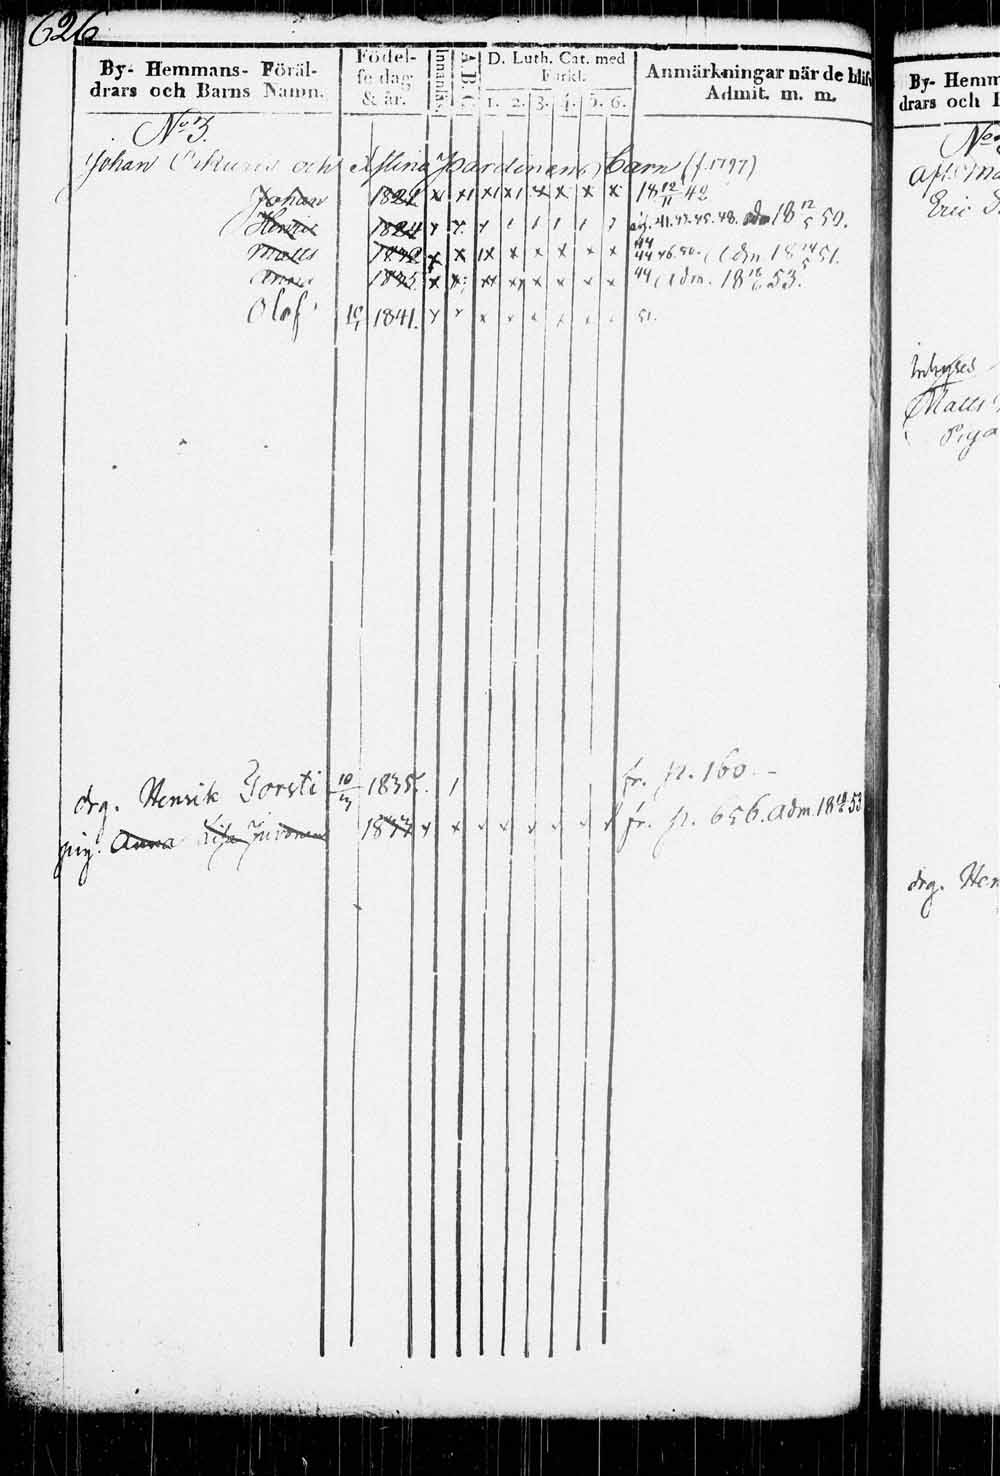 626
By- Hemmans- Föräl-
drars och Barns Namn.
Födel-
se dag
& år.
Innanläs.
A B C
D. Luth. Cat. med
Förkl.
1. 2. 3. 4. 5. 6.
Anmärkningar när de blifv
Admit. m. m.
No 3.
Johan och barn (f. 1797)
Johan 1821 x x 1 x 1 x 1 x x x x 18 12/11 42
Henric 1824 41. 43. 45. 48. adm 18 12/5 50.
Matts 1832 x x 1x x x x x x 44 46. 50. Adm 18 14/5 51.
Anna 1835 x x x x x x x x 44 Adm. 18 53.
Olof 1841. x x x x x x x 51.
drg. Henrik Torsti 10/3 1835. 1 fr. p. 160.
pig. Anna Lisa Juvonen x x x x x x x x fr. p. 656. adm. 18 53
By- Hemm
drars och B
No
Eric
inhyses
Matts
Piga
drg. Hen